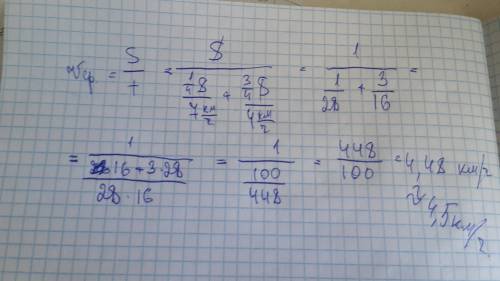 υср = S/t = S/((1/4 S)/(7 км/г) + (3/4 S)/(4 км/г)) = 1/(1/28 + 3/16) =
= 1/((16+3·28)/(28·16)) = 1/(100/448) = 448/100 = 4,48 км/г
≈ 4,5 км/г.